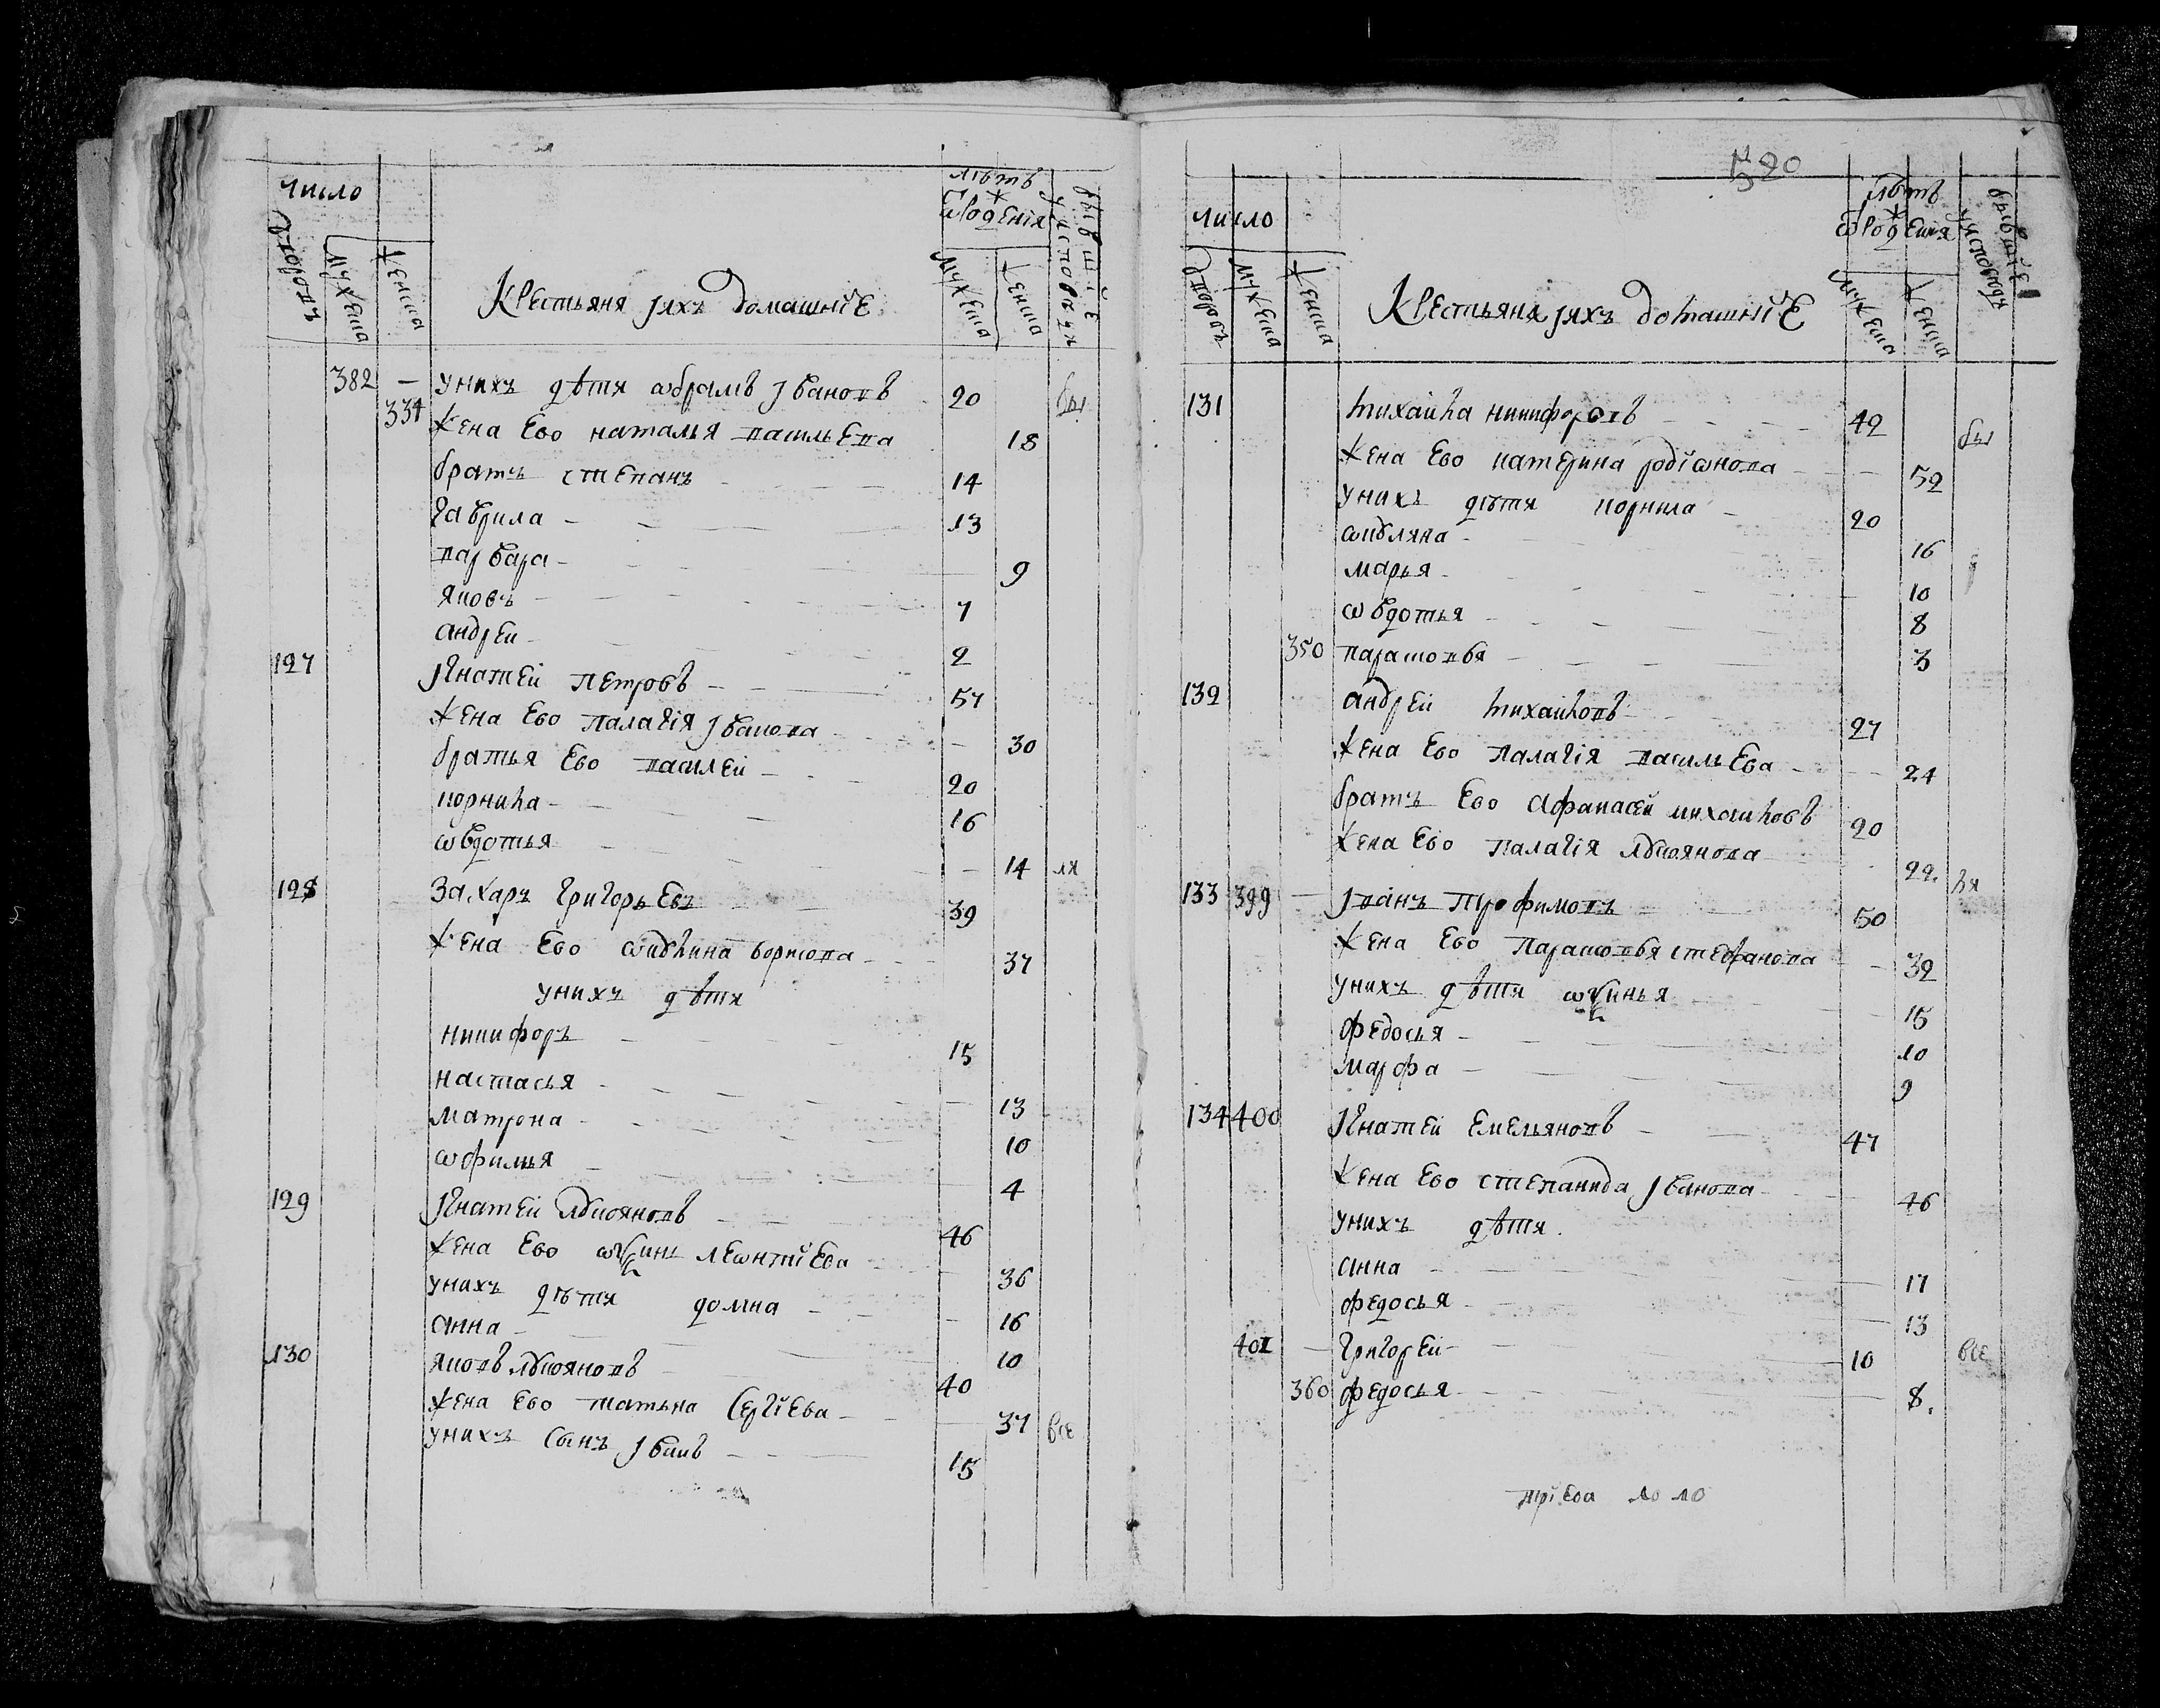 число
дворовъ
мужеска
женска
Крестьяня ихъ домашние
лѣтъ
ѿ рожения
мужеска
женска
бывшие у исповеди
382 — у нихъ дѣти аврамъ Iвановъ 20 бы
334 жена ево наталья васильева 18
братъ степанъ 14
гаврила 13
варвара 9
яковъ 7
андреи 2
127 Iгнатеи петровъ 57
жена ево палагия Iванова 30
братья ево василеи 20
корнила 16
ѡвдотья 14 ля
128 захаръ григорьевъ 39
жена ево акулина борисова 37
у нихъ дѣти
никифоръ 15
настасья 13
матрона 10
ѡфимья 4
129 Iгнатеи лукояновъ 46
жена ево ѡксинья леѡнтиева 36
у нихъ дѣти домна 16
анна 10
130 яковъ лукояновъ 40
жена ево татьяна сергиева 37 все
у нихъ сынъ Iванъ 15
№ 20
число
дворовъ
мужеска
женска
Крестьяня ихъ домашние
лѣтъ
ѿ рожения
мужеска
женска
бывшие у исповеди
131 михаила никифоровъ 42 бы
жена ево катерина родиѡнова 52
у нихъ дѣти корнила 20
акулина 16
марья 10
ѡвдотья 8
350 парасковья 3
132 андреи михаиловъ 27
жена ево палагия васильева 24
братъ ево афанасеи михаиловъ 20
жена ево палагия лукоянова 22 ля
133 399 — Iванъ трофимовъ 50
жена ево парасковья стефанова 32
у нихъ дѣти ѡксинья 15
федосья 10
марфа 9
134 400 Iгнатеи емельяновъ 47
жена ево степанида Iванова 46
у нихъ дѣти
анна 17
федосья 13
401 — григореи 10 все
360 федосья 8